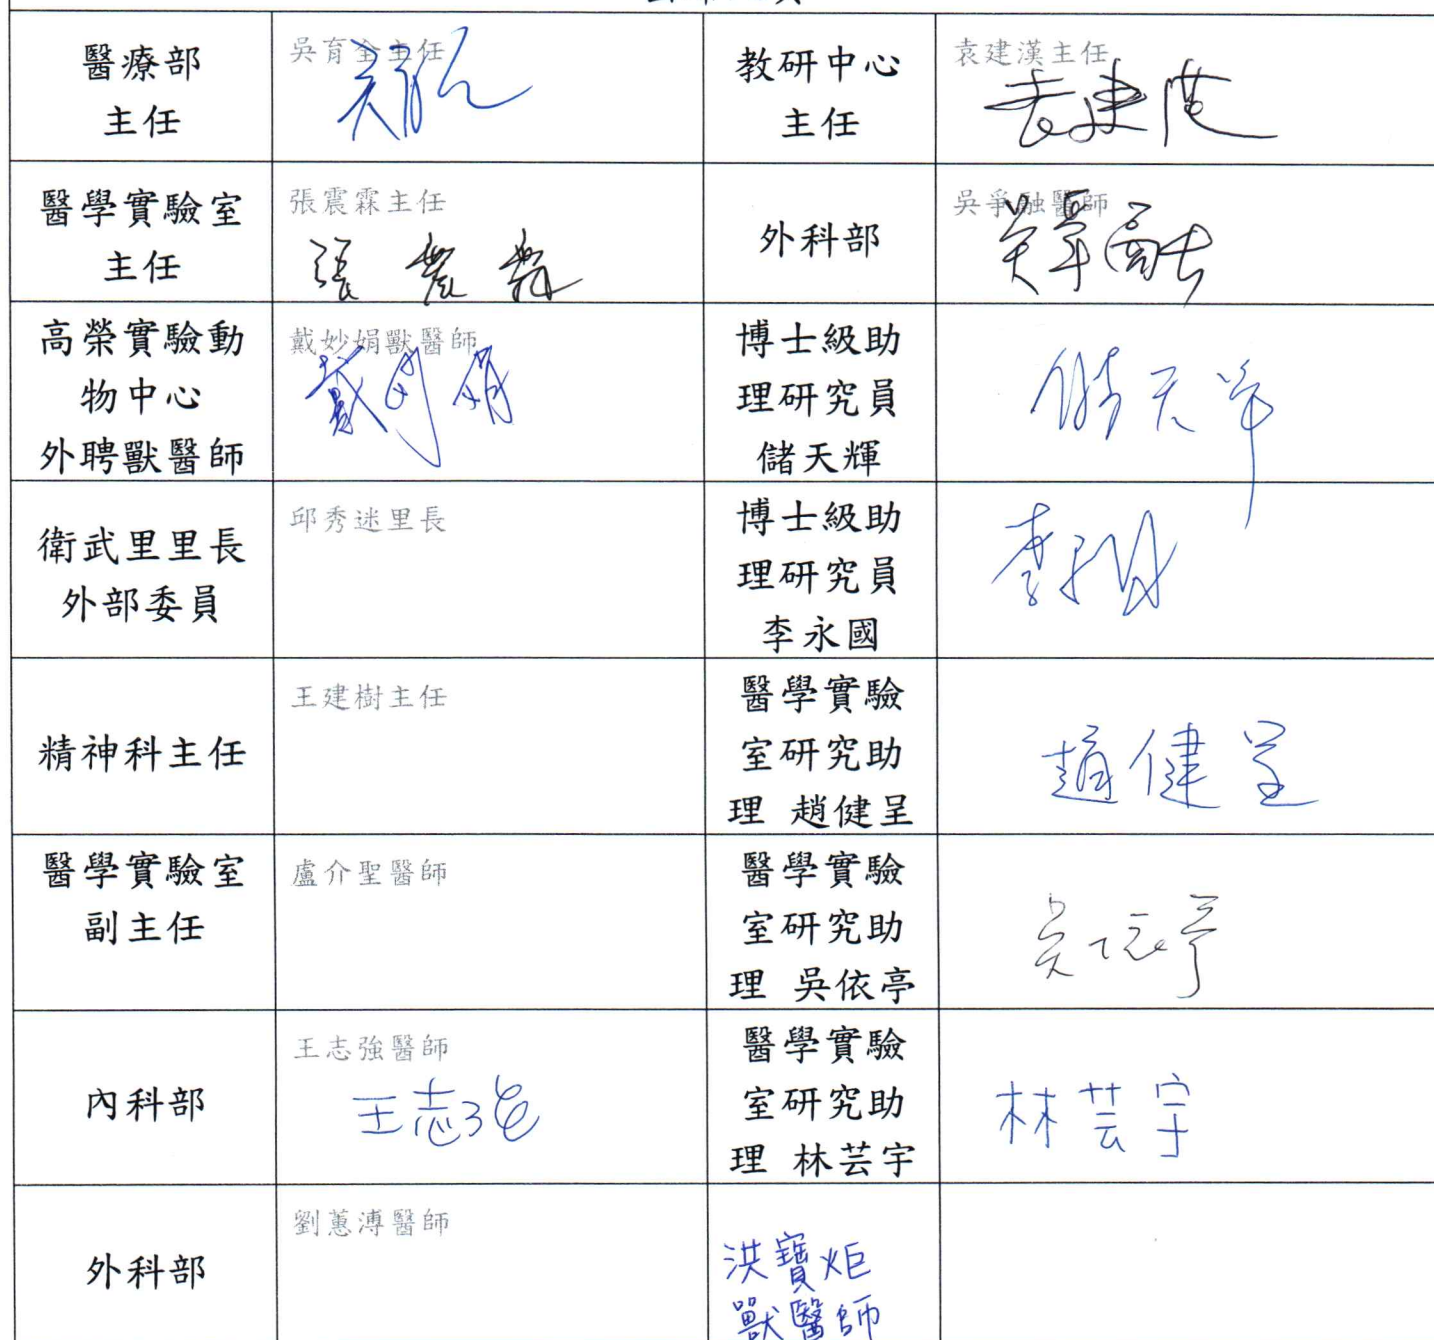 醫療部
主任
吳育全主任
教研中心
主任
袁建漢主任
袁建漢
醫學實驗室
主任
張震霖主任
張震霖
外科部
吳爭融醫師
吳爭融
高榮實驗動
物中心
外聘獸醫師
戴妙娟獸醫師
戴妙娟
博士級助
理研究員
儲天輝
儲天輝
衛武里里長
外部委員
邱秀迷里長
博士級助
理研究員
李永國
精神科主任
王建樹主任
醫學實驗
室研究助
理 趙健呈
趙健呈
醫學實驗室
副主任
盧介聖醫師
醫學實驗
室研究助
理 吳依亭
吳依亭
內科部
王志強醫師
王志強
醫學實驗
室研究助
理 林芸宇
林芸宇
外科部
劉蕙溥醫師
洪寶炬
獸醫師